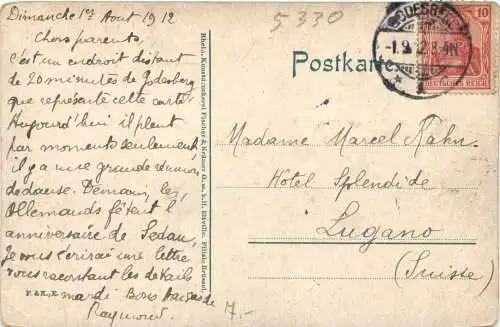 Dimanche 1er Aout 1912
5330
Chers parents,
c'est un endroit distant
de 20 minutes de Godesberg
que représente cette carte.
Aujourd'hui il pleut
par moments seulement,
il y a une grande réunion
de danse. Demain, les
Allemands fêtent l'
anniversaire de Sedan,
je vous écrirai une lettre
vous racontant les details
mardi Bons baisers de
Raymond
7.-
Postkarte
GODESBERG
-1.9.12
10
DEUTSCHES REICH
Madame Marcel Kahn
Hotel Splendide
Lugano
(Suisse)
Rhein. Kunstdruckerei Fischer & Krämer G.m.b.H. Eltville. Filiale Brüssel.